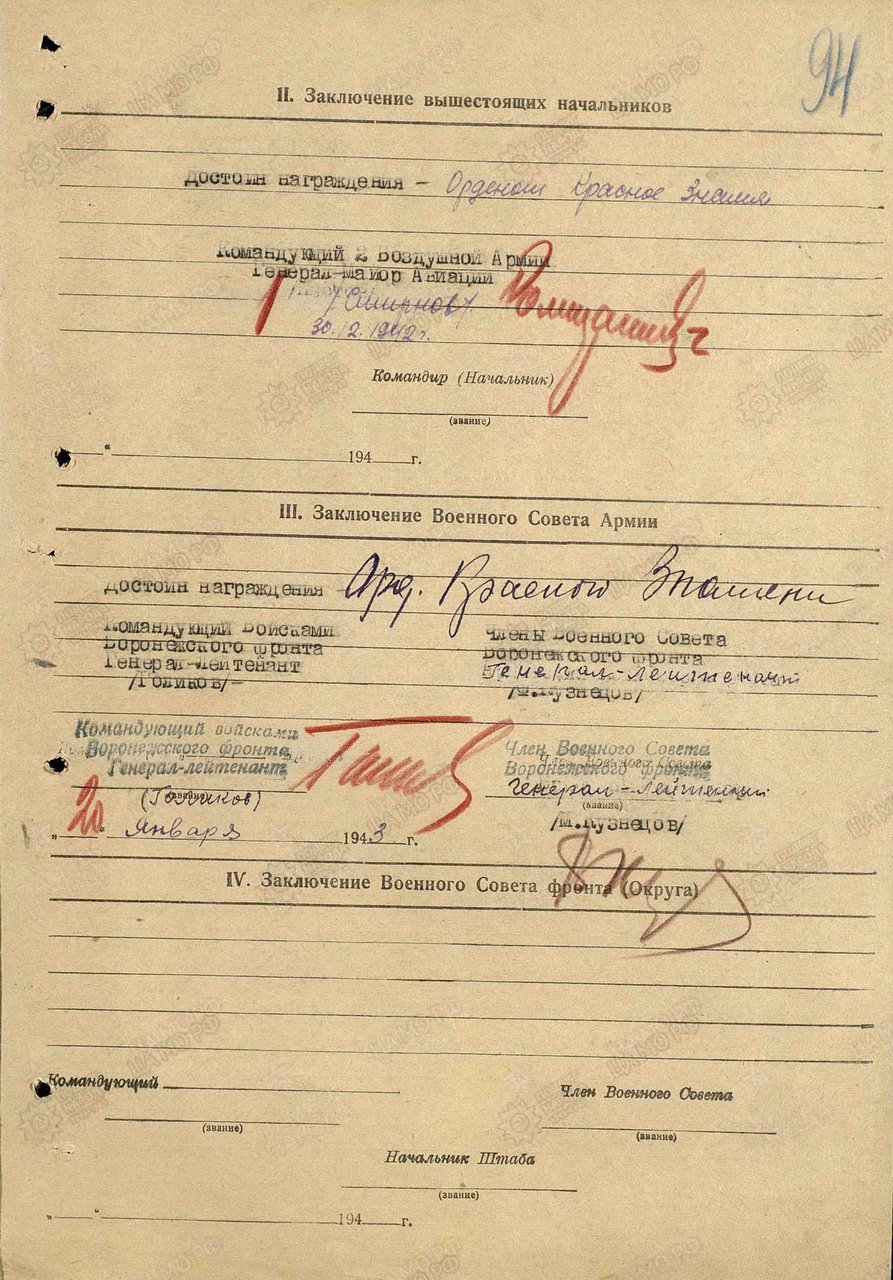 94
II. Заключение вышестоящих начальников
Достоин награждения – Орденом Красное Знамя
Командующий 2 Воздушной Армии
Генерал-Майор Авиации
/Смирнов/
30.12.1942г.
Командир (Начальник)
(звание)
„ “ 194 г.
III. Заключение Военного Совета Армии
Достоин награждения Орд. Красного Знамени
Командующий Войсками
Воронежского фронта
Генерал-лейтенант
/Голиков/
Члены Военного Совета
Воронежского фронта
Генерал-лейтенант
/М.Кузнецов/
Командующий войсками
Воронежского фронта
Генерал-лейтенант
(звание)
(Голиков)
Член Военного Совета
Воронежского фронта
Генерал-лейтенант
(звание)
/М.Кузнецов/
„20“ января 1943 г.
IV. Заключение Военного Совета фронта (Округа)
Командующий
(звание)
Член Военного Совета
(звание)
Начальник Штаба
(звание)
„ “ 194 г.